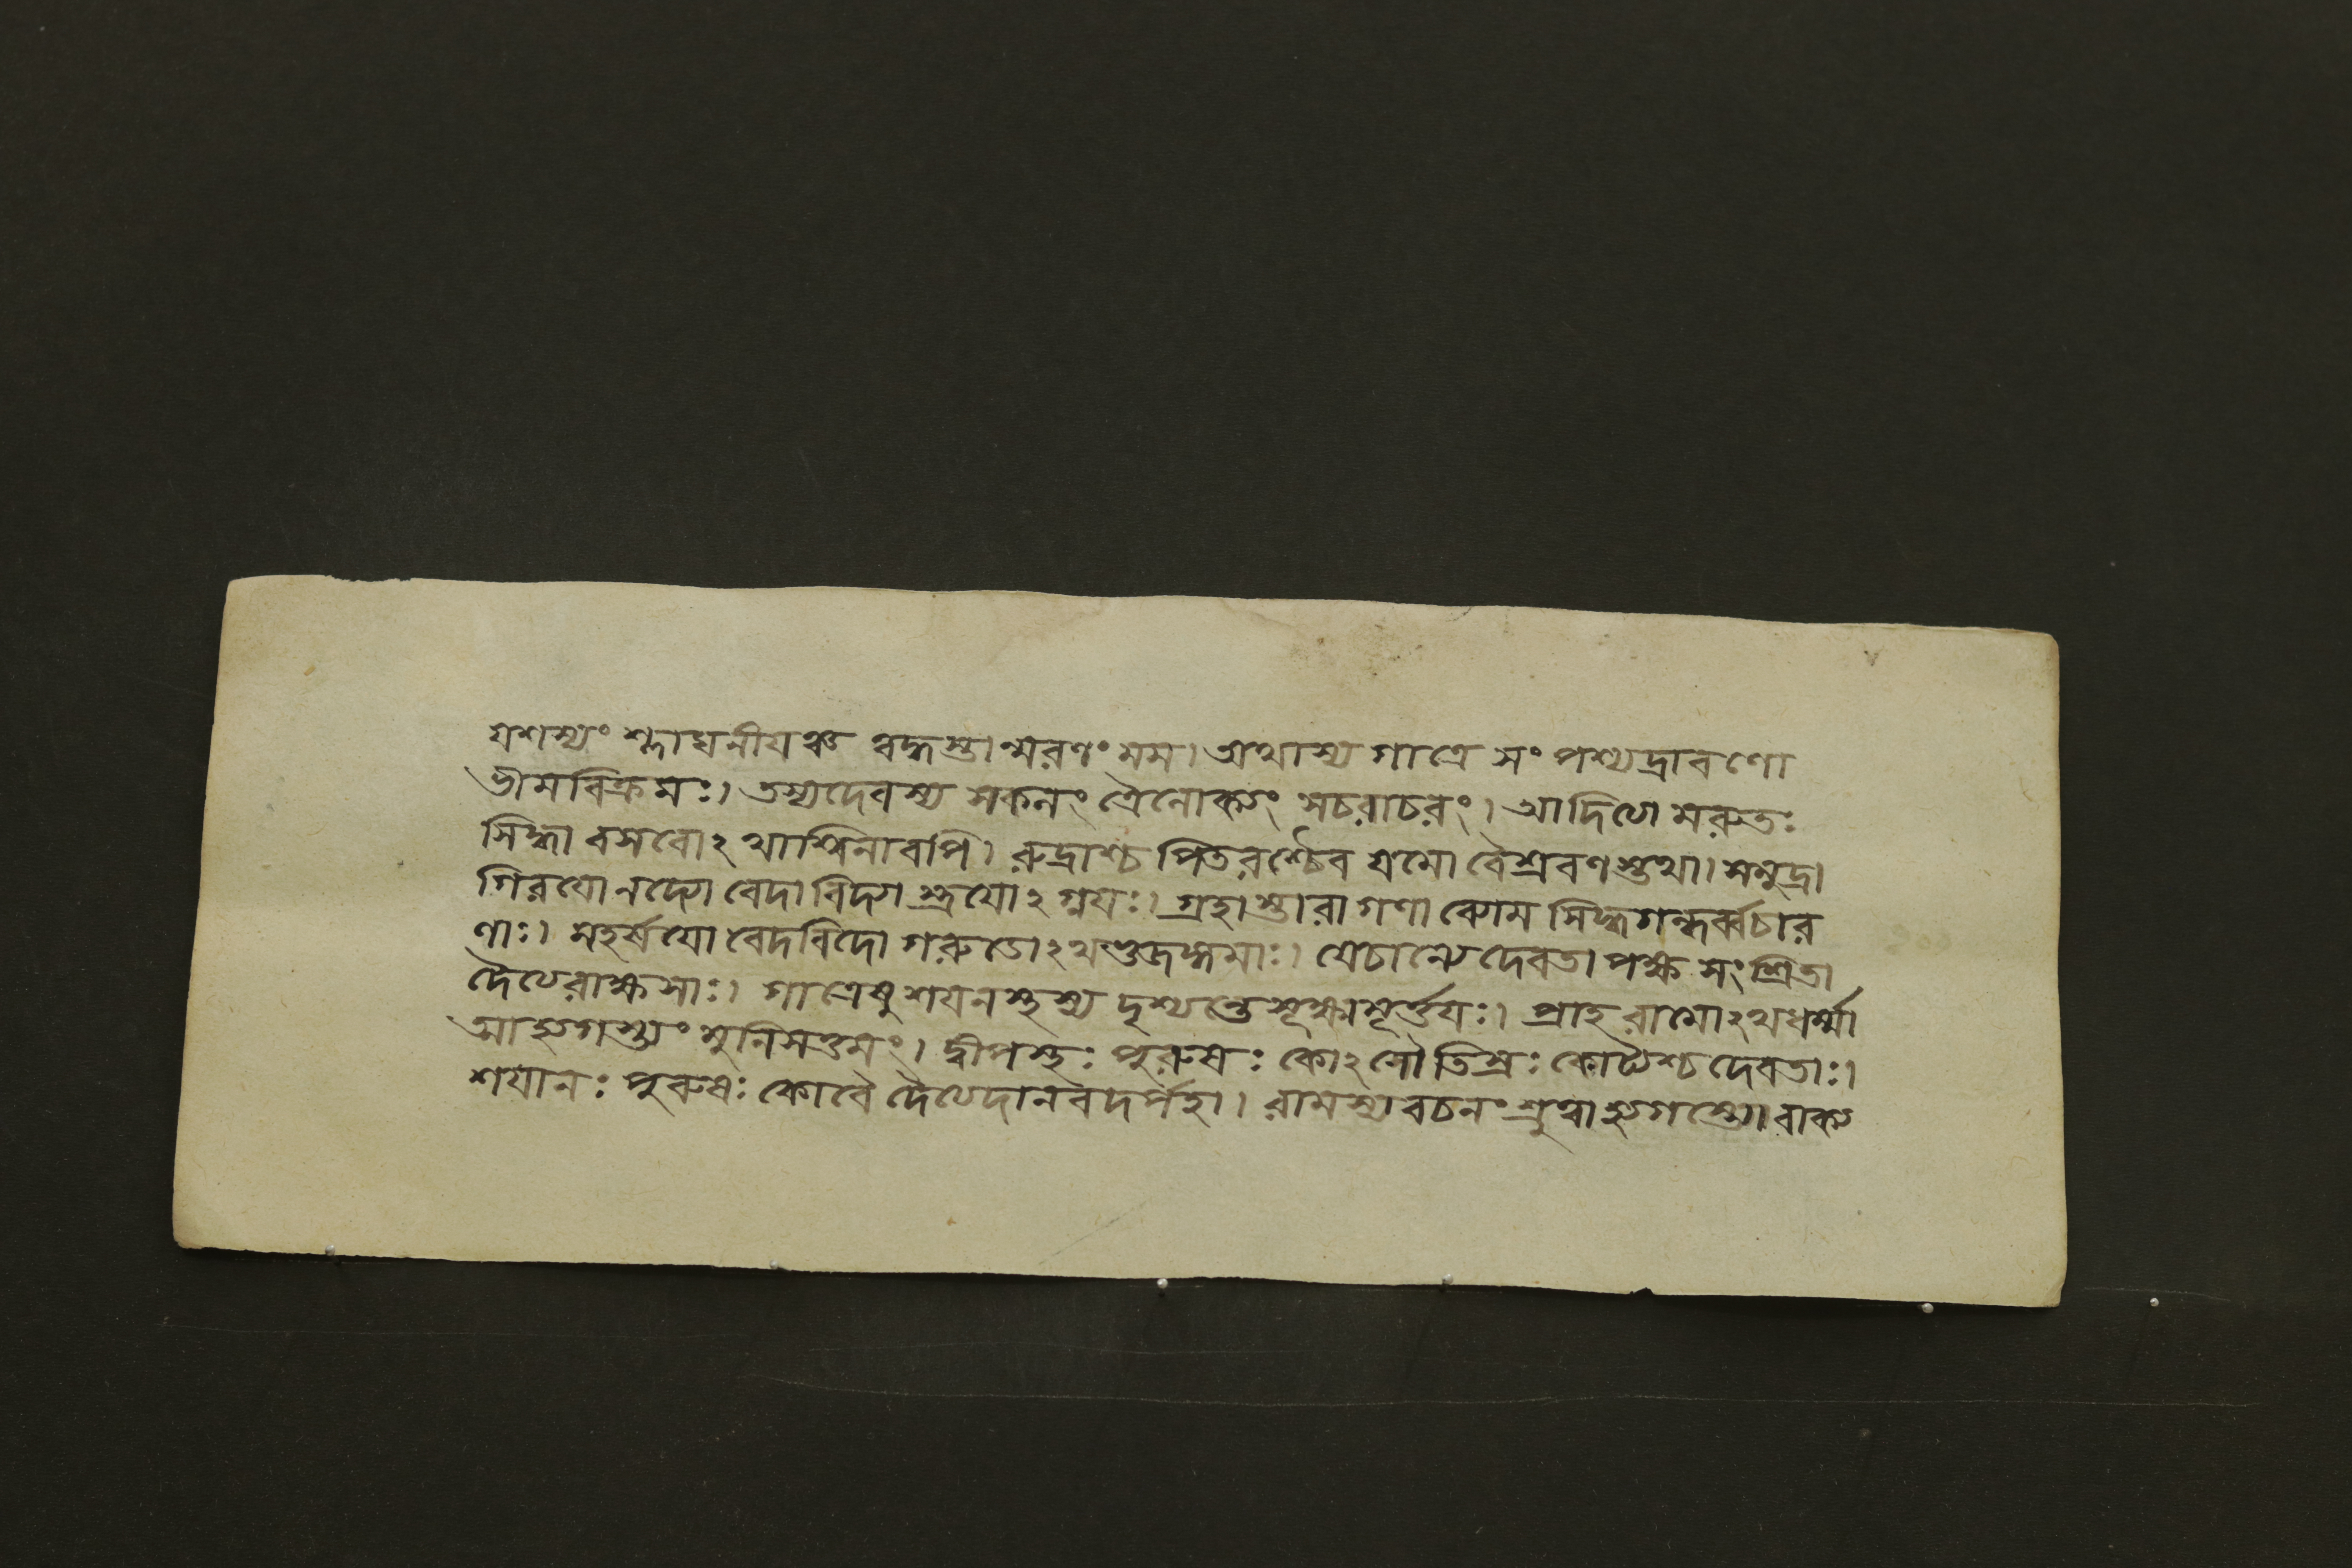 যশস্যং শ্লাঘনীযঞ্চ ত্বদ্ধস্তান্মরণং মম। অথাস্য গাত্রে সং পশ্যদ্রাবণো
ভীমবিক্রমঃ। তস্যদেবস্য সকলং ত্রৈলোক্যং সচরাচরং। আদিত্যে মরুতঃ
সিদ্ধা বসবোঽ থাশ্বিনাবপি। রুদ্রাশ্চ পিতরশ্চৈব যমো বৈশ্রবণস্তথা। সমুদ্রা
গিরযো নদ্যো বেদা বিদ্যা স্ত্রযোঽ গ্নযঃ। গ্রহাস্তারা গণা ব্যোম সিদ্ধগন্ধর্ব্বচার
ণাঃ। মহর্ষযো বেদবিদো গরুডোঽ থভুজঙ্গমাঃ। যেচান্যে দেবতা পক্ষ সংশ্রিতা
দৈত্যরাক্ষসাঃ। গাত্রেষু শযনস্থস্য দৃশ্যন্তে সূক্ষ্মমূর্ত্তযঃ। প্রাহ রামোঽ থধর্ম্মা
আহ্যগস্ত্যং মুনিসত্তমং। দ্বীপস্থঃ পুরুষঃ কোঽ সৌ তিস্রঃ কোট্যশ্চ দেবতাঃ।
শযানঃ পুরুষঃ কোবৈ দৈত্যদানবদর্পহা। রামস্য বচনং শ্রুত্বাহ্যগস্ত্যো বাক্য